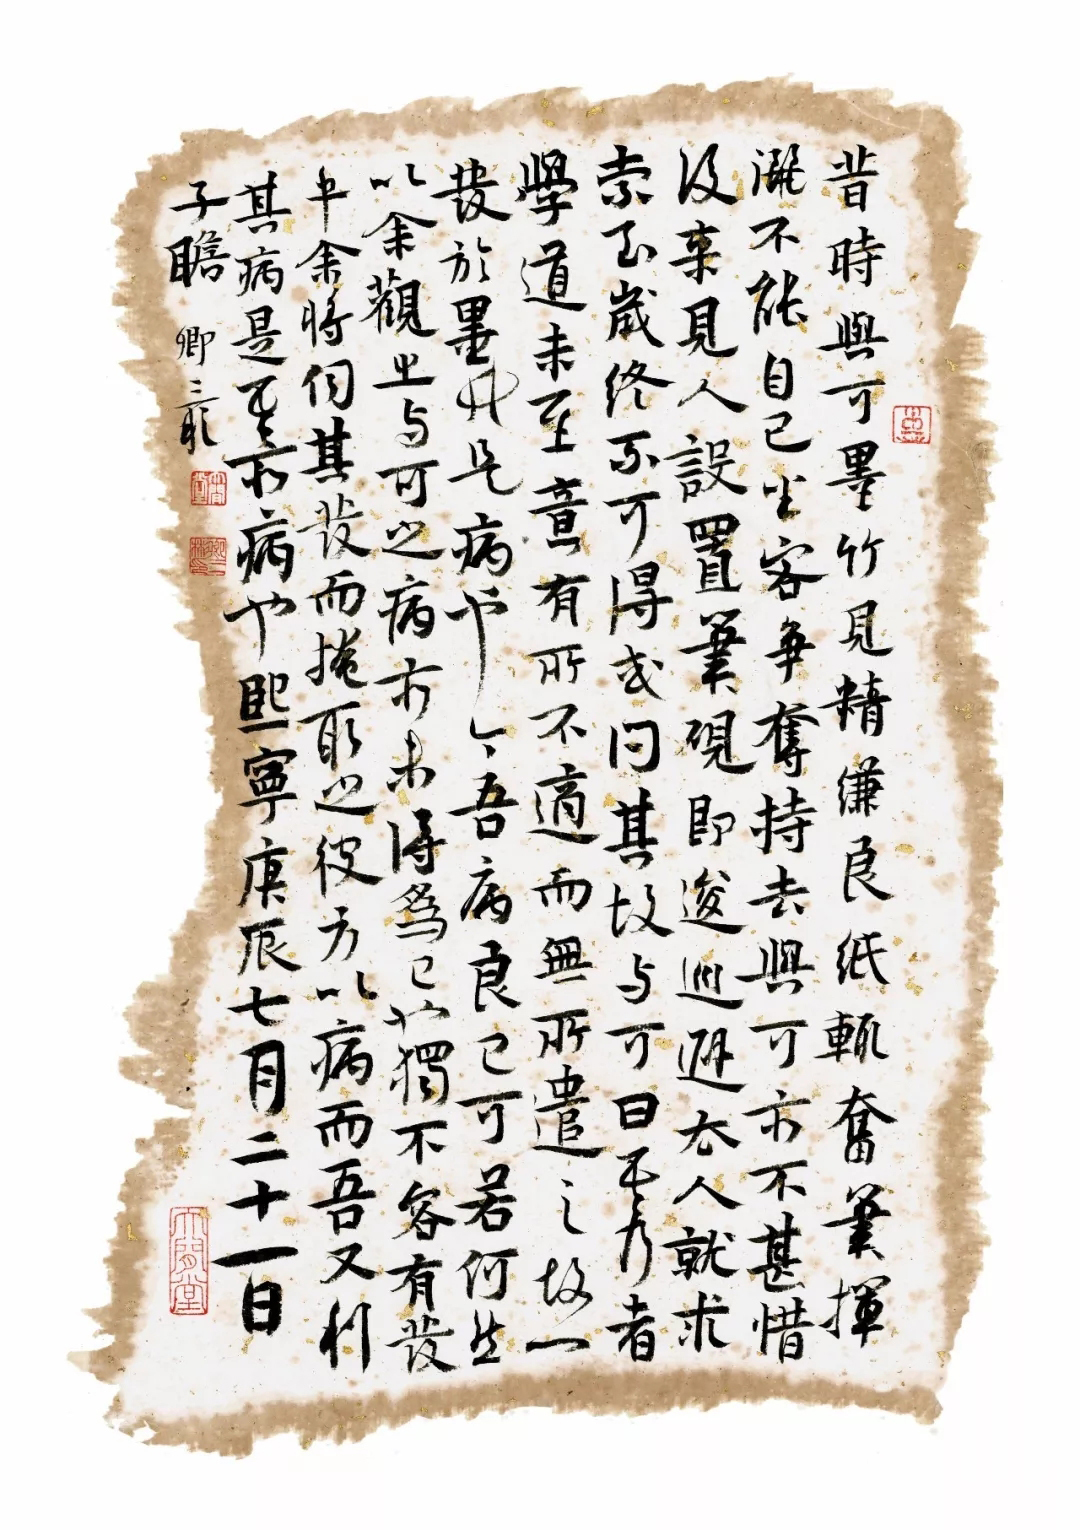 昔時與可墨竹見精縑良紙輒奮筆揮
灑不能自已坐客爭奪持去與可亦不甚惜
後來見人設置筆硯即逡巡避去人就求
索至歲終不可得或問其故与可曰吾乃者
學道未至意有所不適而無所遣之故一
發於墨竹是病也今吾病良已可若何然
以余觀之与可之病亦未得為已也獨不容有發
乎余將伺其發而掩取之彼方以病而吾又利
其病是吾亦病也熙寧庚辰七月二十一日
子瞻 卿三